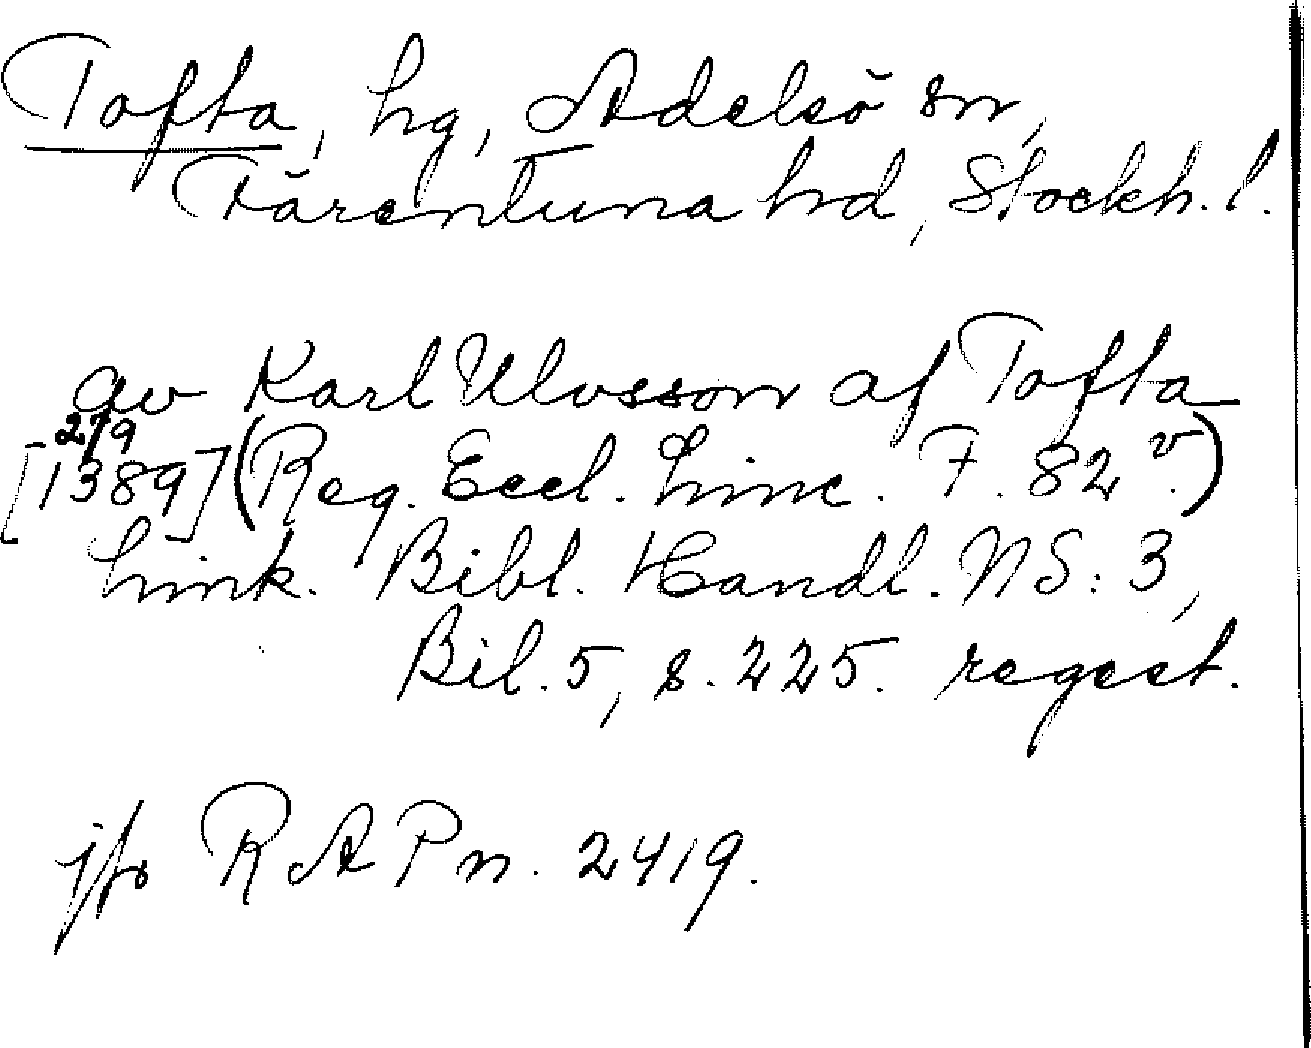 Tofta, hg, Adelsö sn,
Färentuna hd, Stockh. l.
av Karl Ulvsson af Tofta
27/9
[1389] (Reg. Eccl. Linc. F. 82 v.)
Link. Bibl. Handl. NS: 3,
Bil. 5, s. 225. regest.
jfr RAP n. 2419.